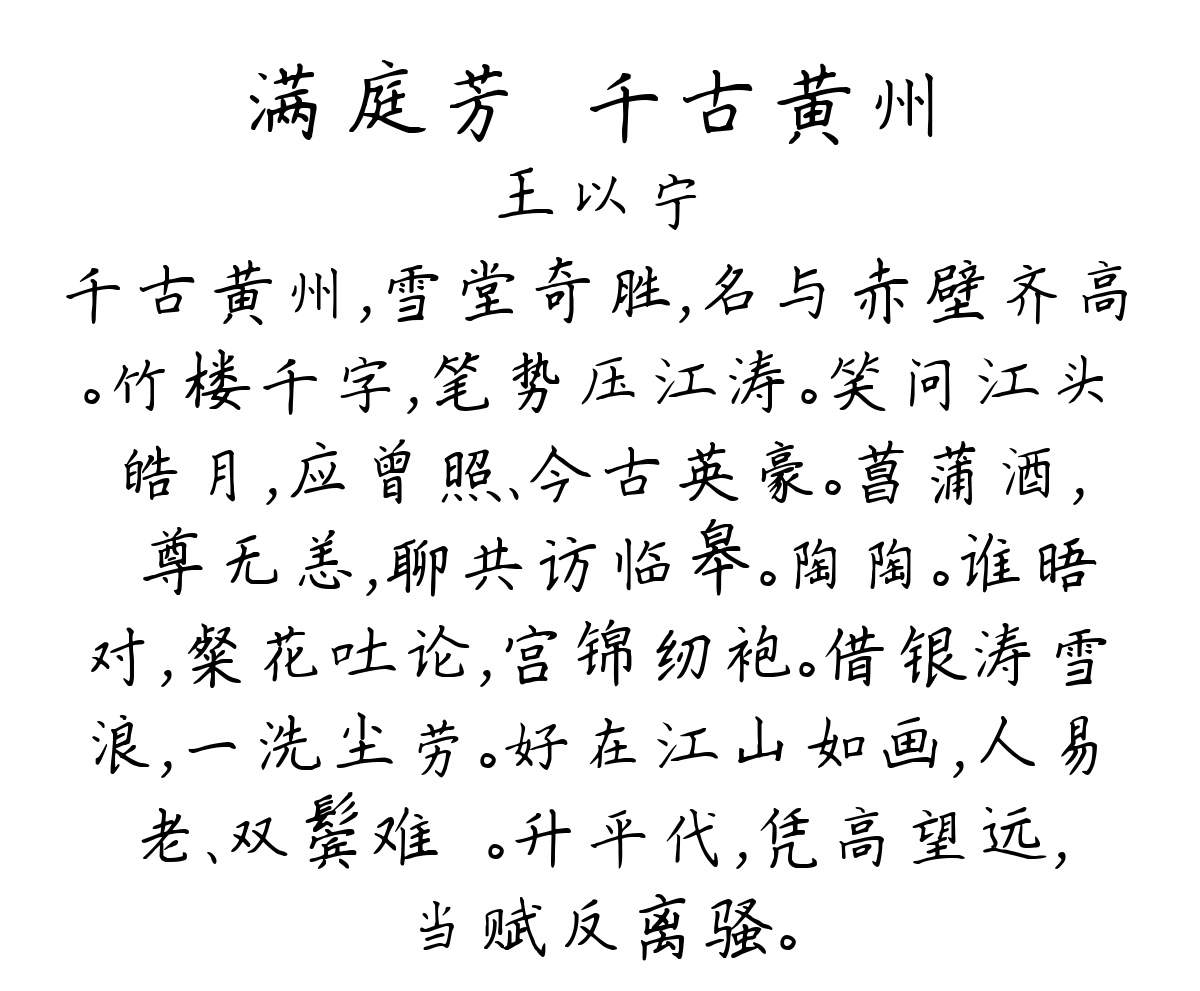 满庭芳 千古黄州
王以宁
千古黄州,雪堂奇胜,名与赤壁齐高
。竹楼千字,笔势压江涛。笑问江头
皓月,应曾照、今古英豪。菖蒲酒,
尊无恙,聊共访临皋。陶陶。谁晤
对,粲花吐论,宫锦纫袍。借银涛雪
浪,一洗尘劳。好在江山如画,人易
老、双鬓难 。升平代,凭高望远,
当赋反离骚。